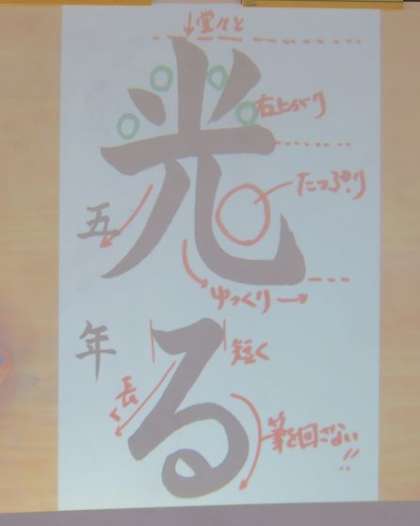 堂々と
右上がり
光
たっぷり
五
ゆっくり
年
短く
る
長く
筆を回さない!!